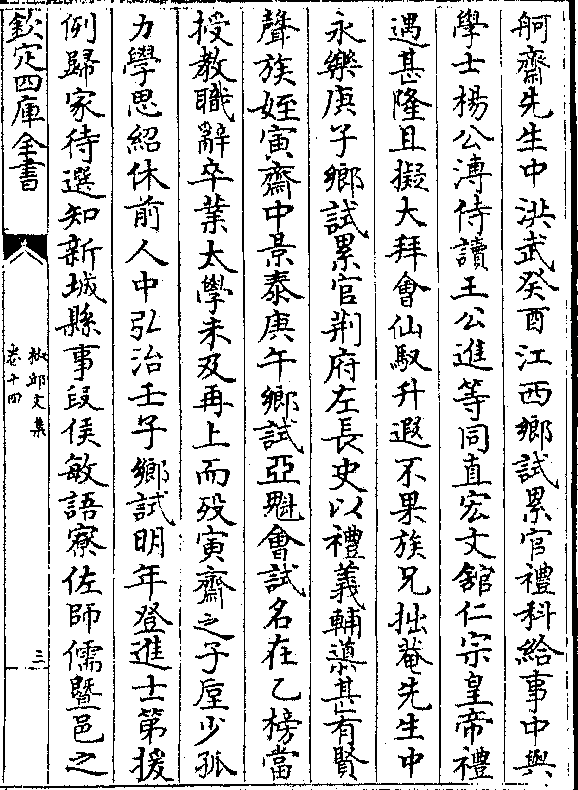 舸齋先生中洪武癸酉江西鄉試累官禮科給事中與
學士楊公溥侍讀王公進等同直宏文舘仁宗皇帝禮
遇甚隆且擬大拜會仙馭升遐不果族兄拙菴先生中
永樂庚子鄉試累官荆府左長史以禮義輔導甚有賢
聲族姪寅齋中景泰庚午鄉試亞魁會試名在乙榜當
授教職辭卒業太學未及再上而殁寅齋之子垕少孤
力學思紹休前人中弘治壬子鄉試明年登進士第援
例歸家待選知新城縣事段侯敏語寮佐師儒暨邑之
欽定四庫全書
椒邱文集
卷十四
三